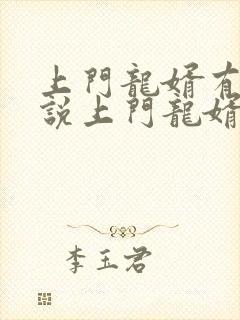 上門龍婿有
說上門龍婿
李玉君